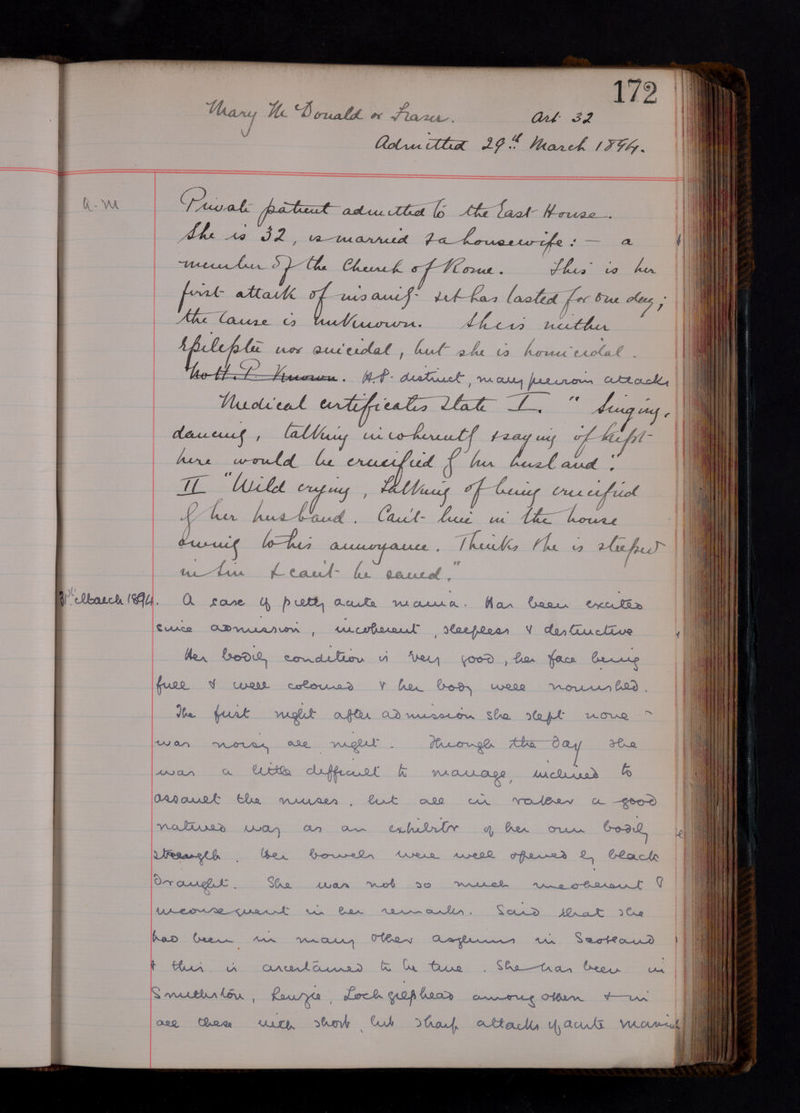 172
Mary McDonald or Fraser. Aet 32
Admitted 29th March 1894.
A.M Private patient admitted to the East House.
She is 32, is married & a housewife: — a
member of the Church of Rome. This is her
first attack of insanity & it has lasted for one day;
the cause is unknown. She is neither
Epileptic nor suicidal, but she is homicidal.
No H.P. Known. H.P. distinct, many previous attacks
Medical certificates state I. "Singing,
dancing, talking incoherently & saying if kept
here would be crucified by her husband".
II "Wild crying, talking of being crucified
by her husband. Can't live in the house
owing to his annoyance. Thinks she is steeped
in sin & can't be saved."
31st March 1894. A case of pretty acute mania. Has been excited
since admission, incoherent, sleepless & destructive
Her bodily condition is very good, her face being
full & well coloured & her body well nourished.
The first night after admission she slept none &
was noisy all night. Through the day she
was a little difficult to manage, inclined to
assault the nurses, but all in rather a good
natured way as an exhibitor of her own bodily
strength. Her bowels were well opened by black
draught. She was not so much incoherent &
inconsequent in her remarks. Said that she
had been in many other asylums in Scotland
& this is ascertained to be true. She has been in
Smithston, Lenzie, Lochgilphead among others & in
all these with short, but sharp attacks of acute mania